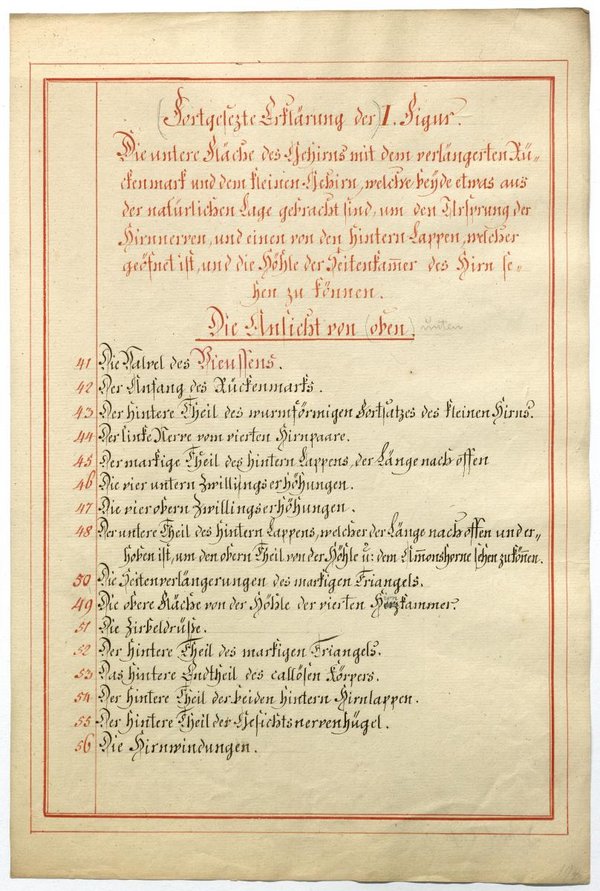 (Fortgesezte Erklärung der) I. Figur.
Die untere Fläche des Gehirns mit dem verlängerten Rü-
ckenmark und dem kleinen Gehirn, welche beyde etwas aus
der natürlichen Lage gebracht sind, um den Ursprung der
Hirnnerven, und einen von den hintern Lappen, welcher
geöfnet ist, und die Höhle der Seitenkam̅er des Hirn se-
hen zu können.
Die Ansicht von (oben) unten
41 Die Valvel des Vieussens.
42 Der Anfang des Rückenmarks.
43 Der hintere Theil des wurmförmigen Fortsatzes des kleinen Hirns.
44 Der linke Nerve vom vierten Hirnpaare.
45 Der markige Theil des hintern Lappens, der Länge nach offen
46 Die vier untern Zwillingserhöhungen.
47 Die vier obern Zwillingserhöhungen.
48 Der untere Theil des hintern Lappens, welcher der Länge nach offen und er-
hoben ist, um den obern Theil von der Höhle u: dem Am̅onshorne sehen zu kön̅en.
50 Die Seitenverlängerungen des markigen Triangels.
49 Die obere Fläche von der Höhle der vierten Hirnkammer.
51 Die Zirbeldrüße.
52 Der hintere Theil des markigen Triangels.
53 Das hintere Endtheil des callösen Körpers.
54 Der hintere Theil der beiden hintern Hirnlappen.
55 Der hintere Theil der Gesichtsnervenhügel.
56 Die Hirnwindungen.